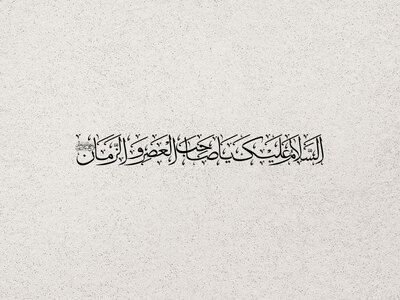 السلام علیک یا صاحب العصر و الزمان